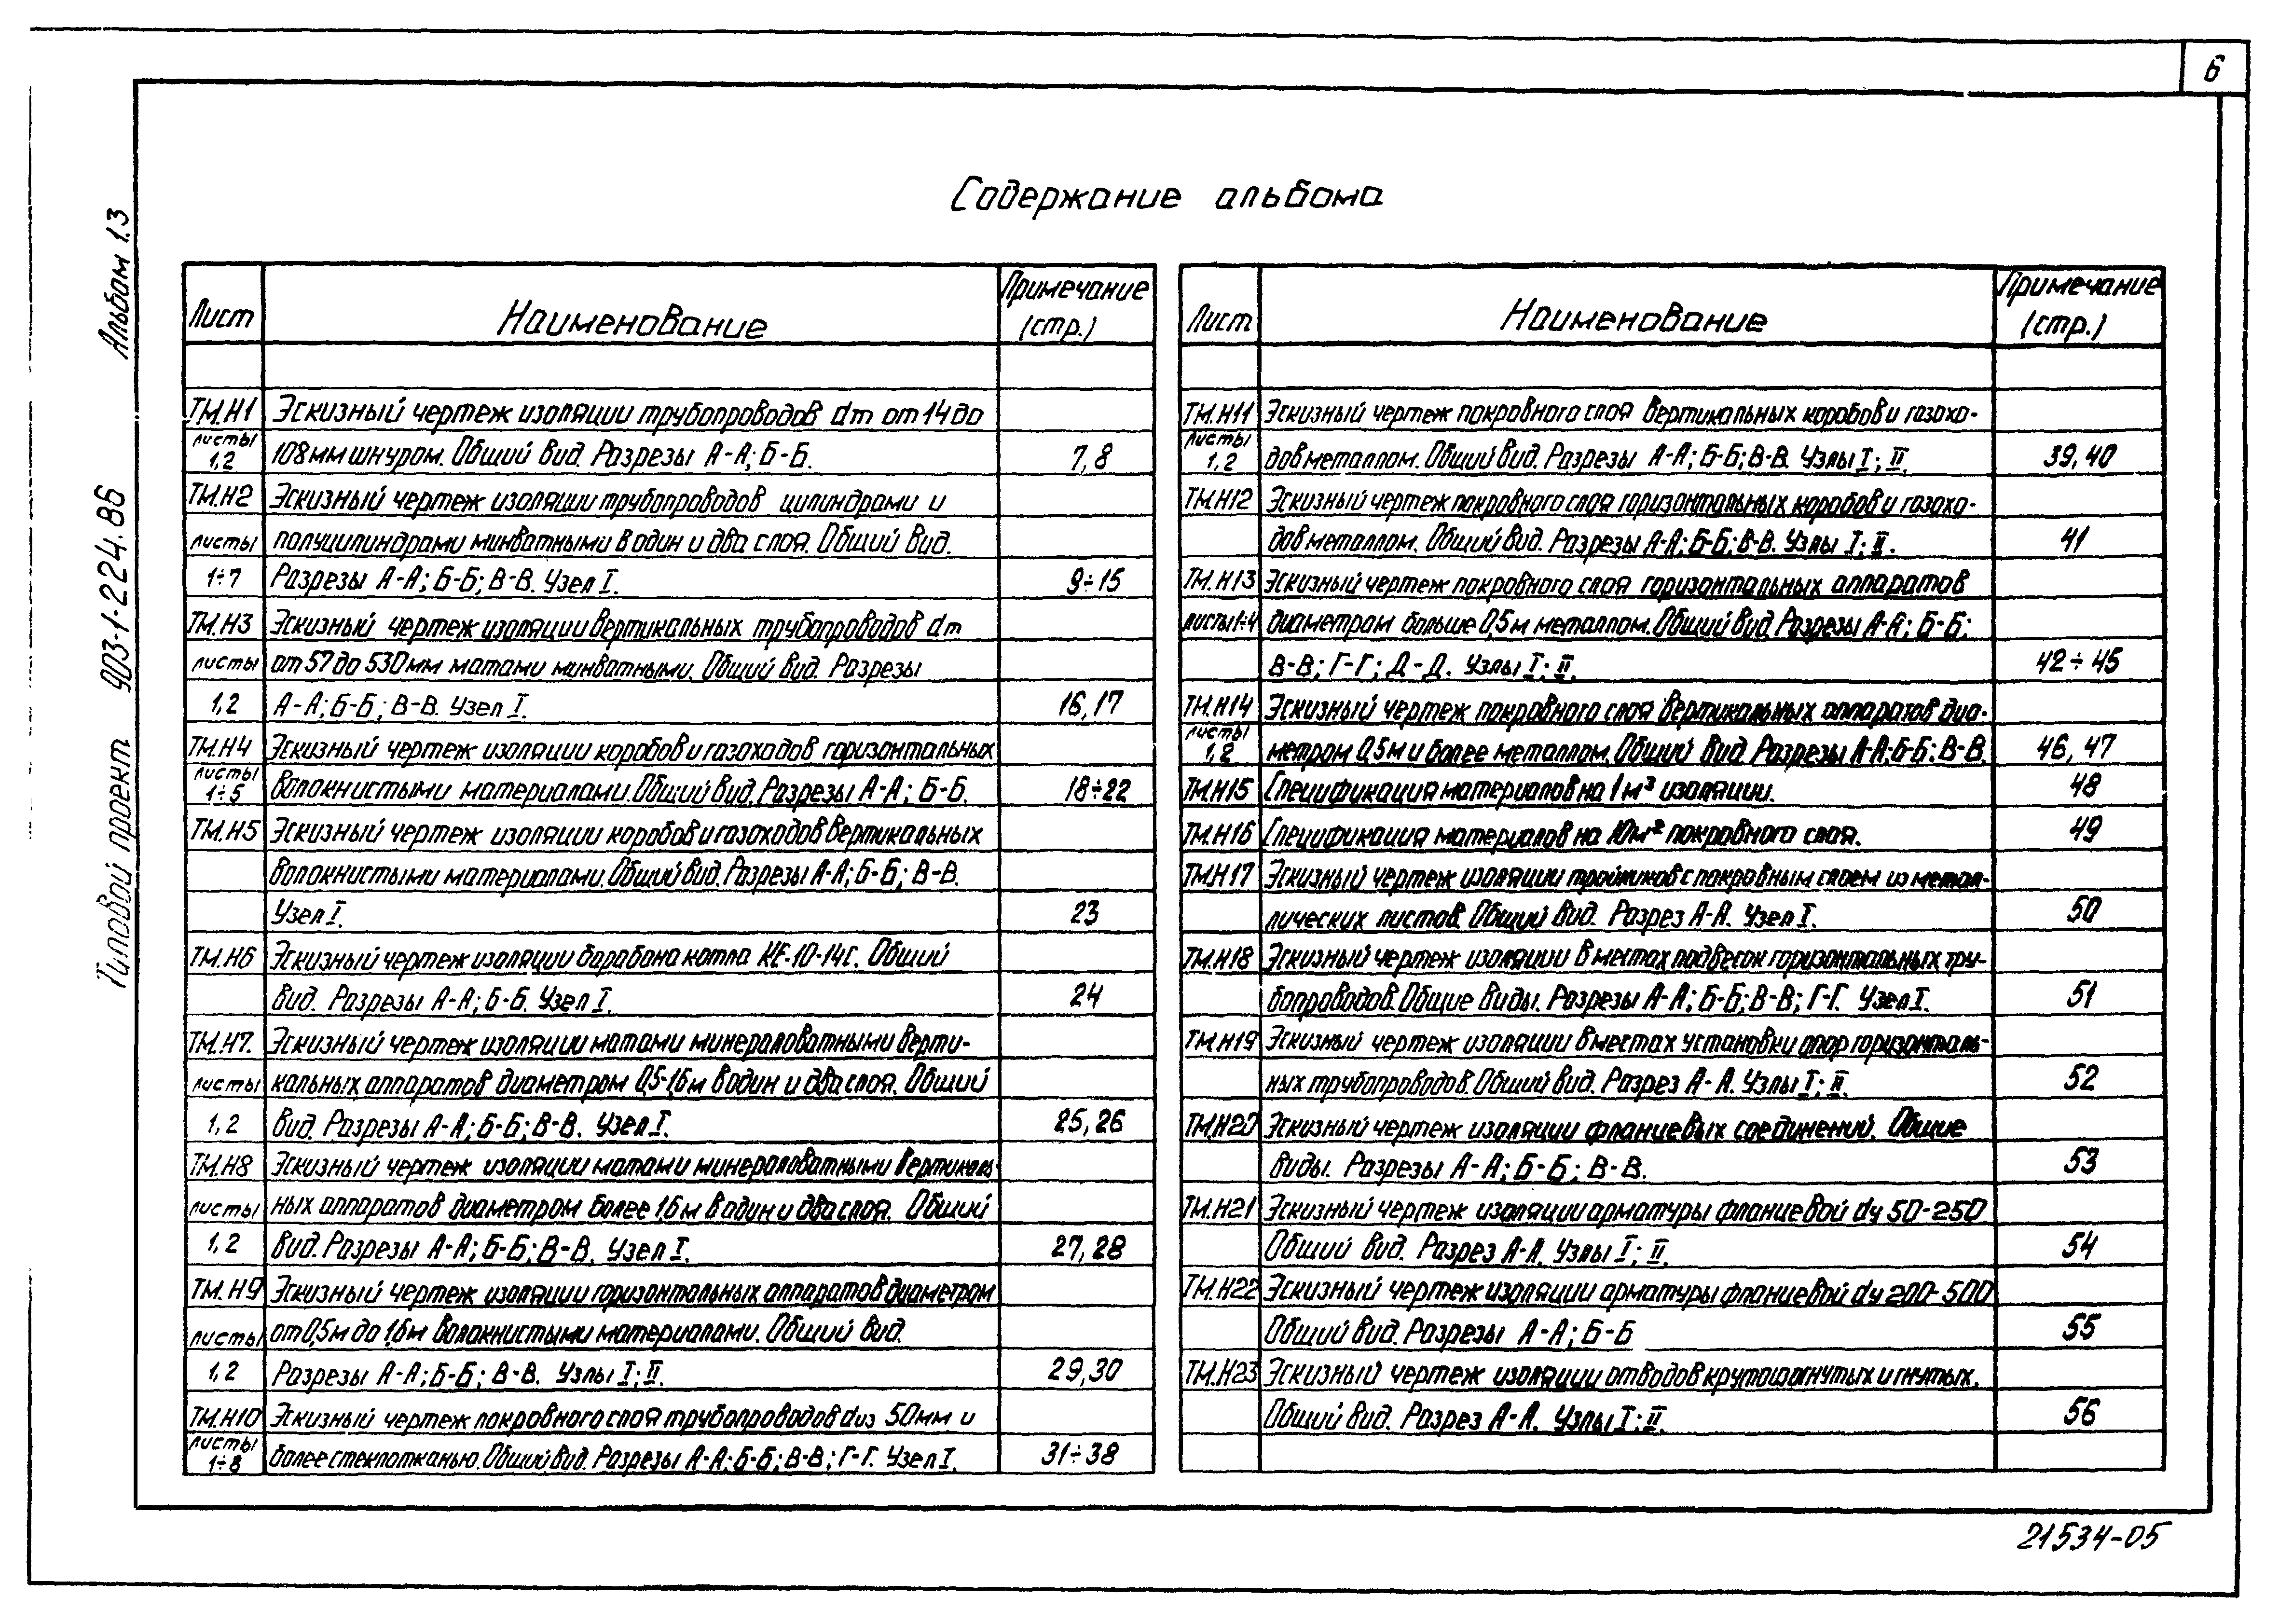 6
Содержание альбома
Альбом 1.3
Типовой проект 903-1-224.86
Лист Наименование Примечание (стр.)
ТМ.Н1 Эскизный чертеж изоляции трубопроводов dт от 14 до
листы 1,2 108мм шнуром. Общий вид. Разрезы А-А; Б-Б. 7,8
ТМ.Н2 Эскизный чертеж изоляции трубопроводов цилиндрами и
листы полуцилиндрами минватными в один и два слоя. Общий вид.
1÷7 Разрезы А-А; Б-Б; В-В. Узел I. 9÷15
ТМ.Н3 Эскизный чертеж изоляции вертикальных трубопроводов dт
листы от 57 до 530мм матами минватными. Общий вид. Разрезы
1,2 А-А; Б-Б; В-В. Узел I. 16,17
ТМ.Н4 Эскизный чертеж изоляции коробов и газоходов горизонтальных
листы 1÷5 волокнистыми материалами. Общий вид. Разрезы А-А; Б-Б. 18÷22
ТМ.Н5 Эскизный чертеж изоляции коробов и газоходов вертикальных
волокнистыми материалами. Общий вид. Разрезы А-А; Б-Б; В-В.
Узел I. 23
ТМ.Н6 Эскизный чертеж изоляции барабана котла КЕ-10-14С. Общий
вид. Разрезы А-А; Б-Б. Узел I. 24
ТМ.Н7. Эскизный чертеж изоляции матами минераловатными верти-
листы кальных аппаратов диаметром 0,5-1,6м в один и два слоя. Общий
1,2 вид. Разрезы А-А; Б-Б; В-В. Узел I. 25,26
ТМ.Н8 Эскизный чертеж изоляции матами минераловатными вертикаль
листы ных аппаратов диаметром более 1,6м в один и два слоя. Общий
1,2 вид. Разрезы А-А; Б-Б; В-В. Узел I. 27,28
ТМ.Н9 Эскизный чертеж изоляции горизонтальных аппаратов диаметром
листы от 0,5м до 1,6м волокнистыми материалами. Общий вид.
1,2 Разрезы А-А; Б-Б; В-В. Узлы I; II. 29,30
ТМ.Н10 Эскизный чертеж покровного слоя трубопроводов dиз 50мм и
листы 1÷8 более стеклотканью. Общий вид. Разрезы А-А; Б-Б; В-В; Г-Г. Узел I. 31÷38
Лист Наименование Примечание (стр.)
ТМ.Н11 Эскизный чертеж покровного слоя вертикальных коробов и газохо-
листы 1,2 дов металлом. Общий вид. Разрезы А-А; Б-Б; В-В. Узлы I; II. 39,40
ТМ.Н12 Эскизный чертеж покровного слоя горизонтальных коробов и газохо-
дов металлом. Общий вид. Разрезы А-А; Б-Б; В-В. Узлы I; II. 41
ТМ.Н13 Эскизный чертеж покровного слоя горизонтальных аппаратов
листы 1÷4 диаметром больше 0,5м металлом. Общий вид. Разрезы А-А; Б-Б;
В-В; Г-Г; Д-Д. Узлы I; II. 42÷45
ТМ.Н14 Эскизный чертеж покровного слоя вертикальных аппаратов диа-
листы 1,2 метром 0,5м и более металлом. Общий вид. Разрезы А-А; Б-Б; В-В. 46,47
ТМ.Н15 Спецификация материалов на 1м³ изоляции. 48
ТМ.Н16 Спецификация материалов на 10м² покровного слоя. 49
ТМ.Н17 Эскизный чертеж изоляции тройников с покровным слоем из метал-
лических листов. Общий вид. Разрез А-А. Узел I. 50
ТМ.Н18 Эскизный чертеж изоляции в местах подвесок горизонтальных тру-
бопроводов. Общие виды. Разрезы А-А; Б-Б; В-В; Г-Г. Узел I. 51
ТМ.Н19 Эскизный чертеж изоляции в местах установки опор горизонталь-
ных трубопроводов. Общий вид. Разрез А-А. Узлы I; II. 52
ТМ.Н20 Эскизный чертеж изоляции фланцевых соединений. Общие
виды. Разрезы А-А; Б-Б; В-В. 53
ТМ.Н21 Эскизный чертеж изоляции арматуры фланцевой dу 50-250.
Общий вид. Разрез А-А. Узлы I; II. 54
ТМ.Н22 Эскизный чертеж изоляции арматуры фланцевой dу 200-500
Общий вид. Разрезы А-А; Б-Б 55
ТМ.Н23 Эскизный чертеж изоляции отводов крутоизогнутых и гнутых.
Общий вид. Разрез А-А. Узлы I; II. 56
21534-05